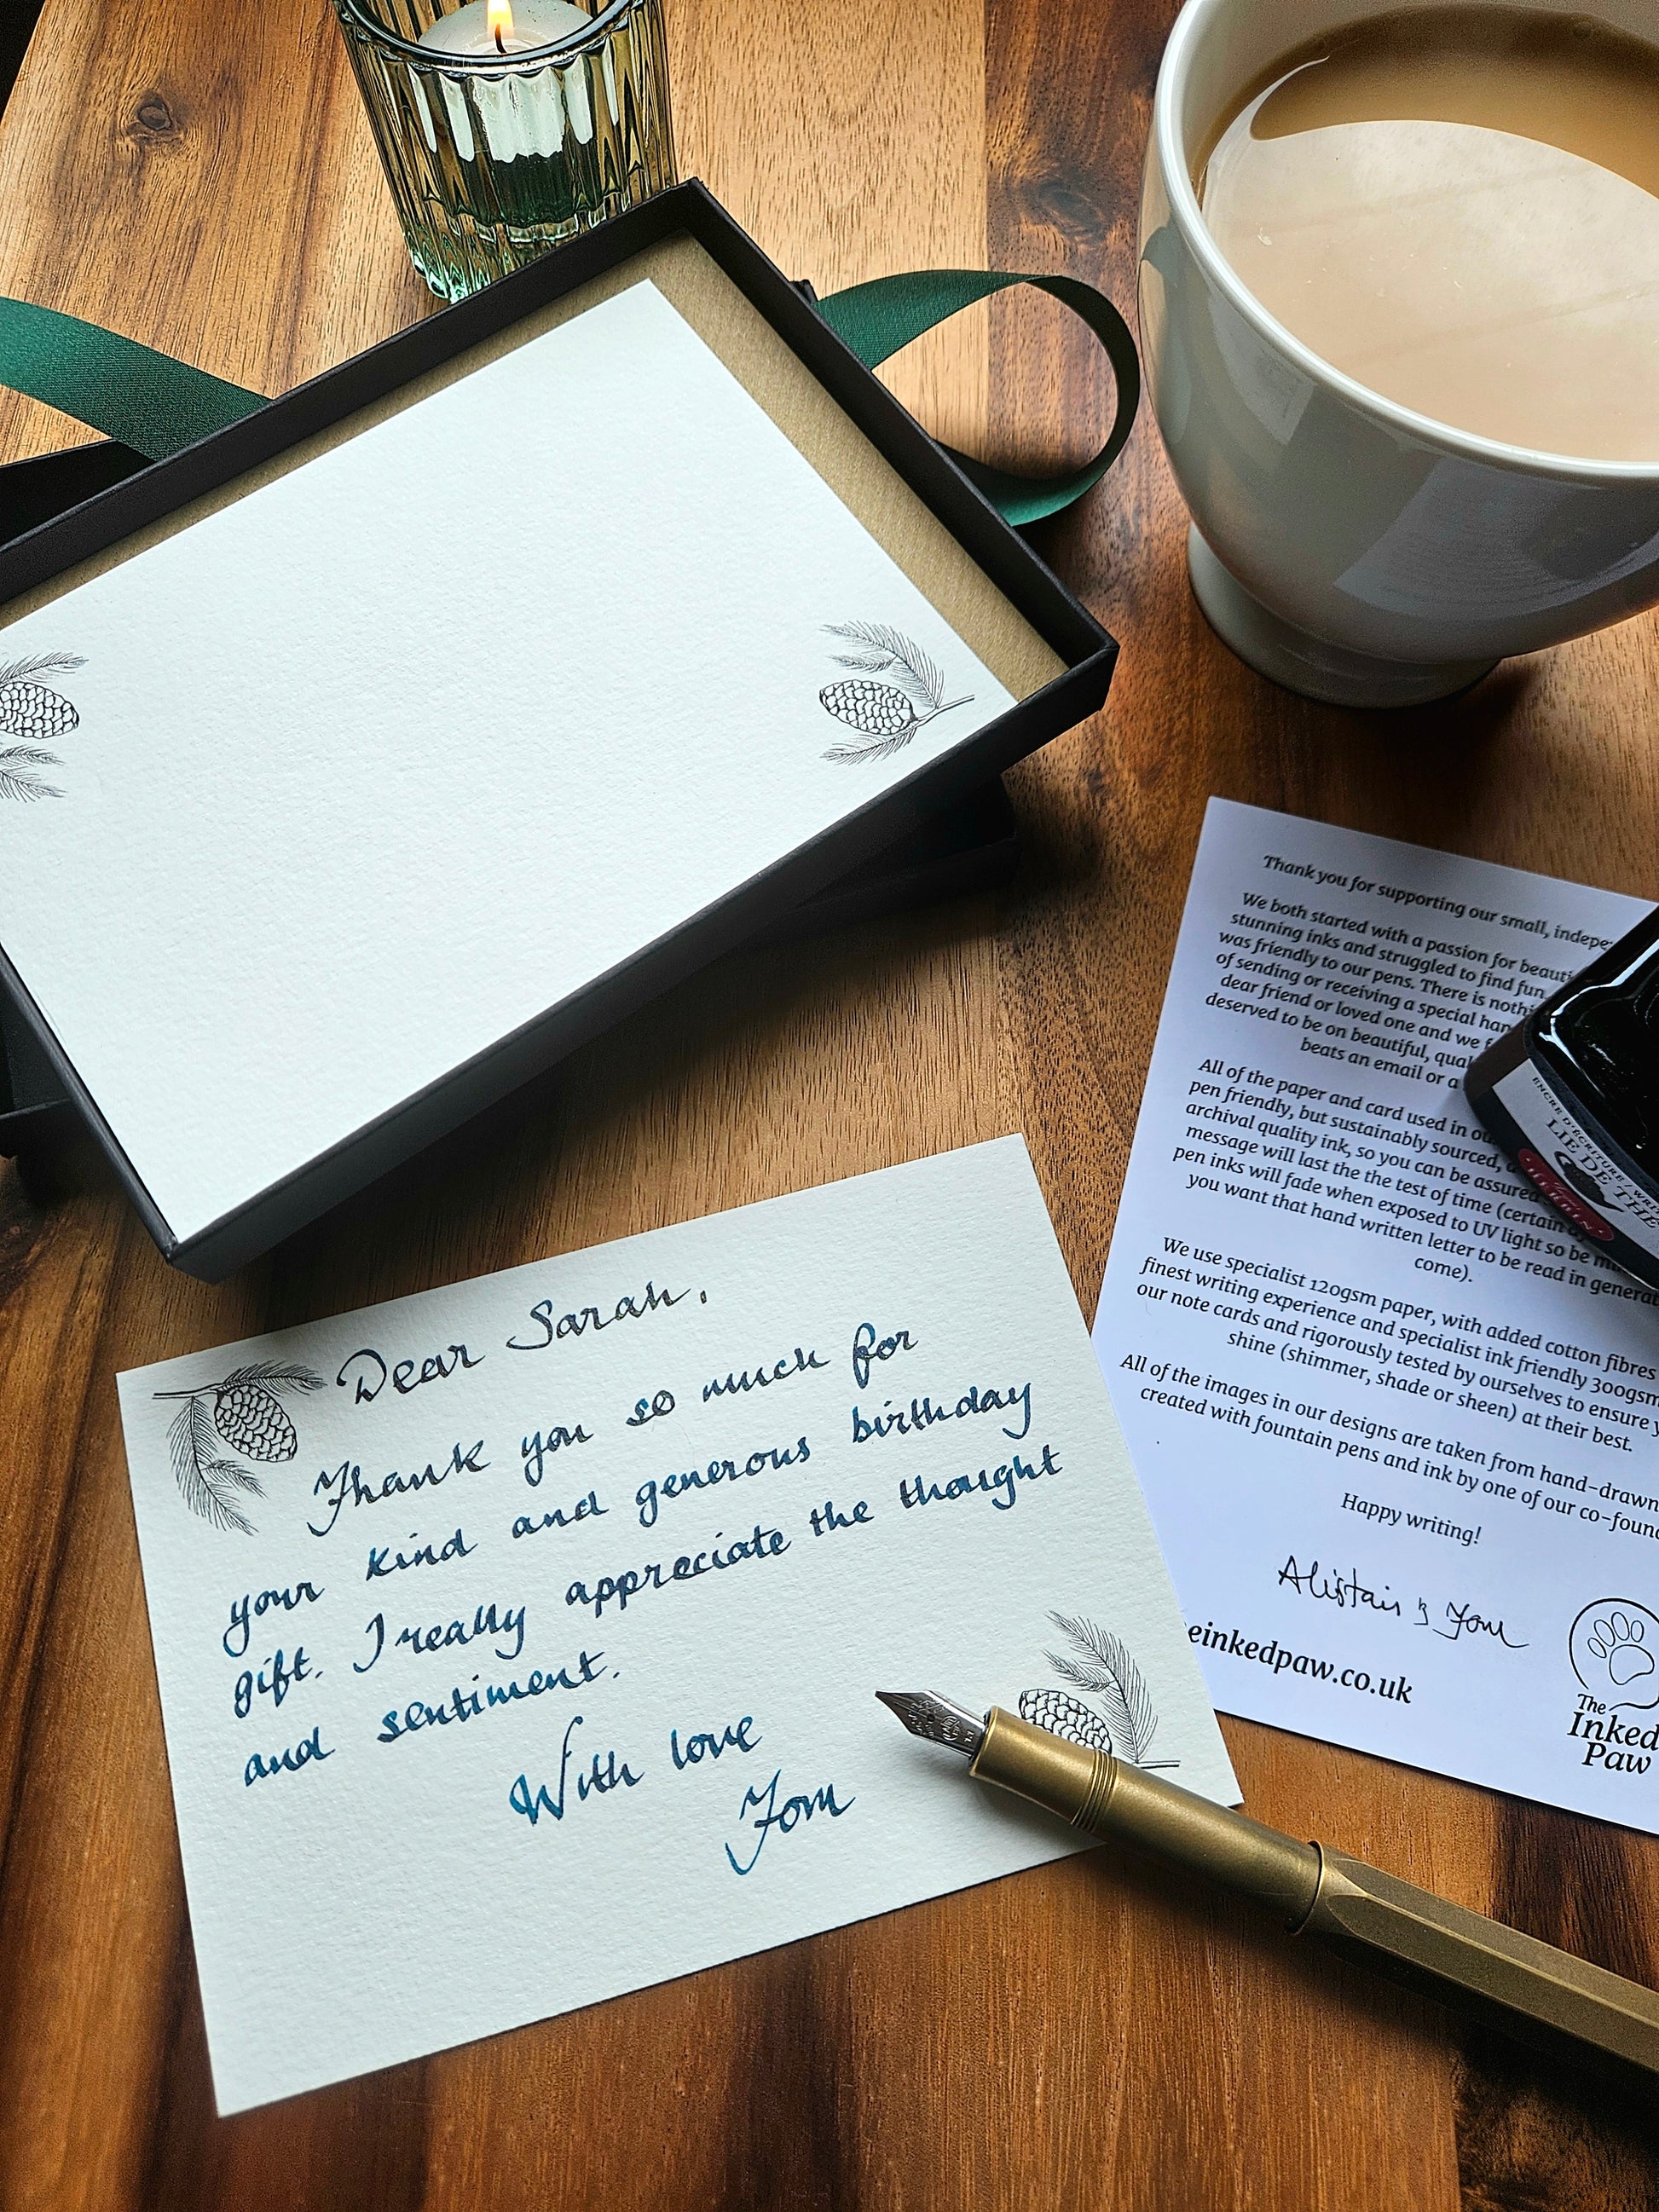 Dear Sarah,
Thank you so much for
your kind and generous birthday
gift. I really appreciate the thought
and sentiment.
With love
Tom
Thank you for supporting our small,
We both started with a passion for
stunning inks and struggled to find
was friendly to our pens. There is
of sending or receiving a special
dear friend or loved one and we
deserved to be on beautiful,
beats an email or a
All of the paper and card used in
pen friendly, but sustainably sourced,
archival quality ink, so you can be assured
message will last the the test of time (certain
pen inks will fade when exposed to UV light so be
you want that hand written letter to be read in
come).
We use specialist 120gsm paper, with added cotton fibres
finest writing experience and specialist ink friendly 300gsm
our note cards and rigorously tested by ourselves to ensure
shine (shimmer, shade or sheen) at their best.
All of the images in our designs are taken from hand-drawn
created with fountain pens and ink by one of our
Happy writing!
Alistair & Tom
einkedpaw.co.uk
The
Inked
Paw
ENCRE D'ECRITURE
LIE DE THE